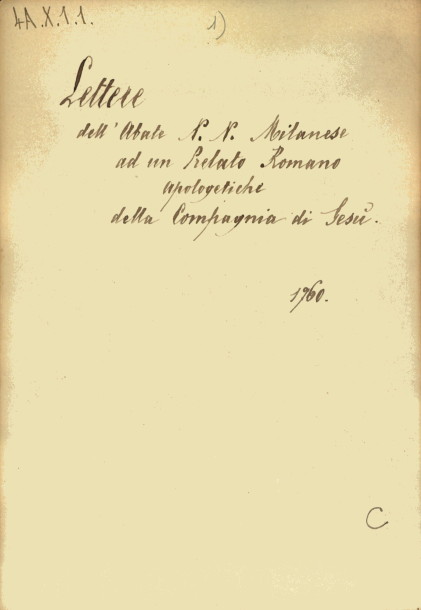 4A.X.1.1.
1)
Lettere
dell'Abate N. N. Milanese
ad un Prelato Romano
apologetiche
della Compagnia di Gesù.
1760.
C